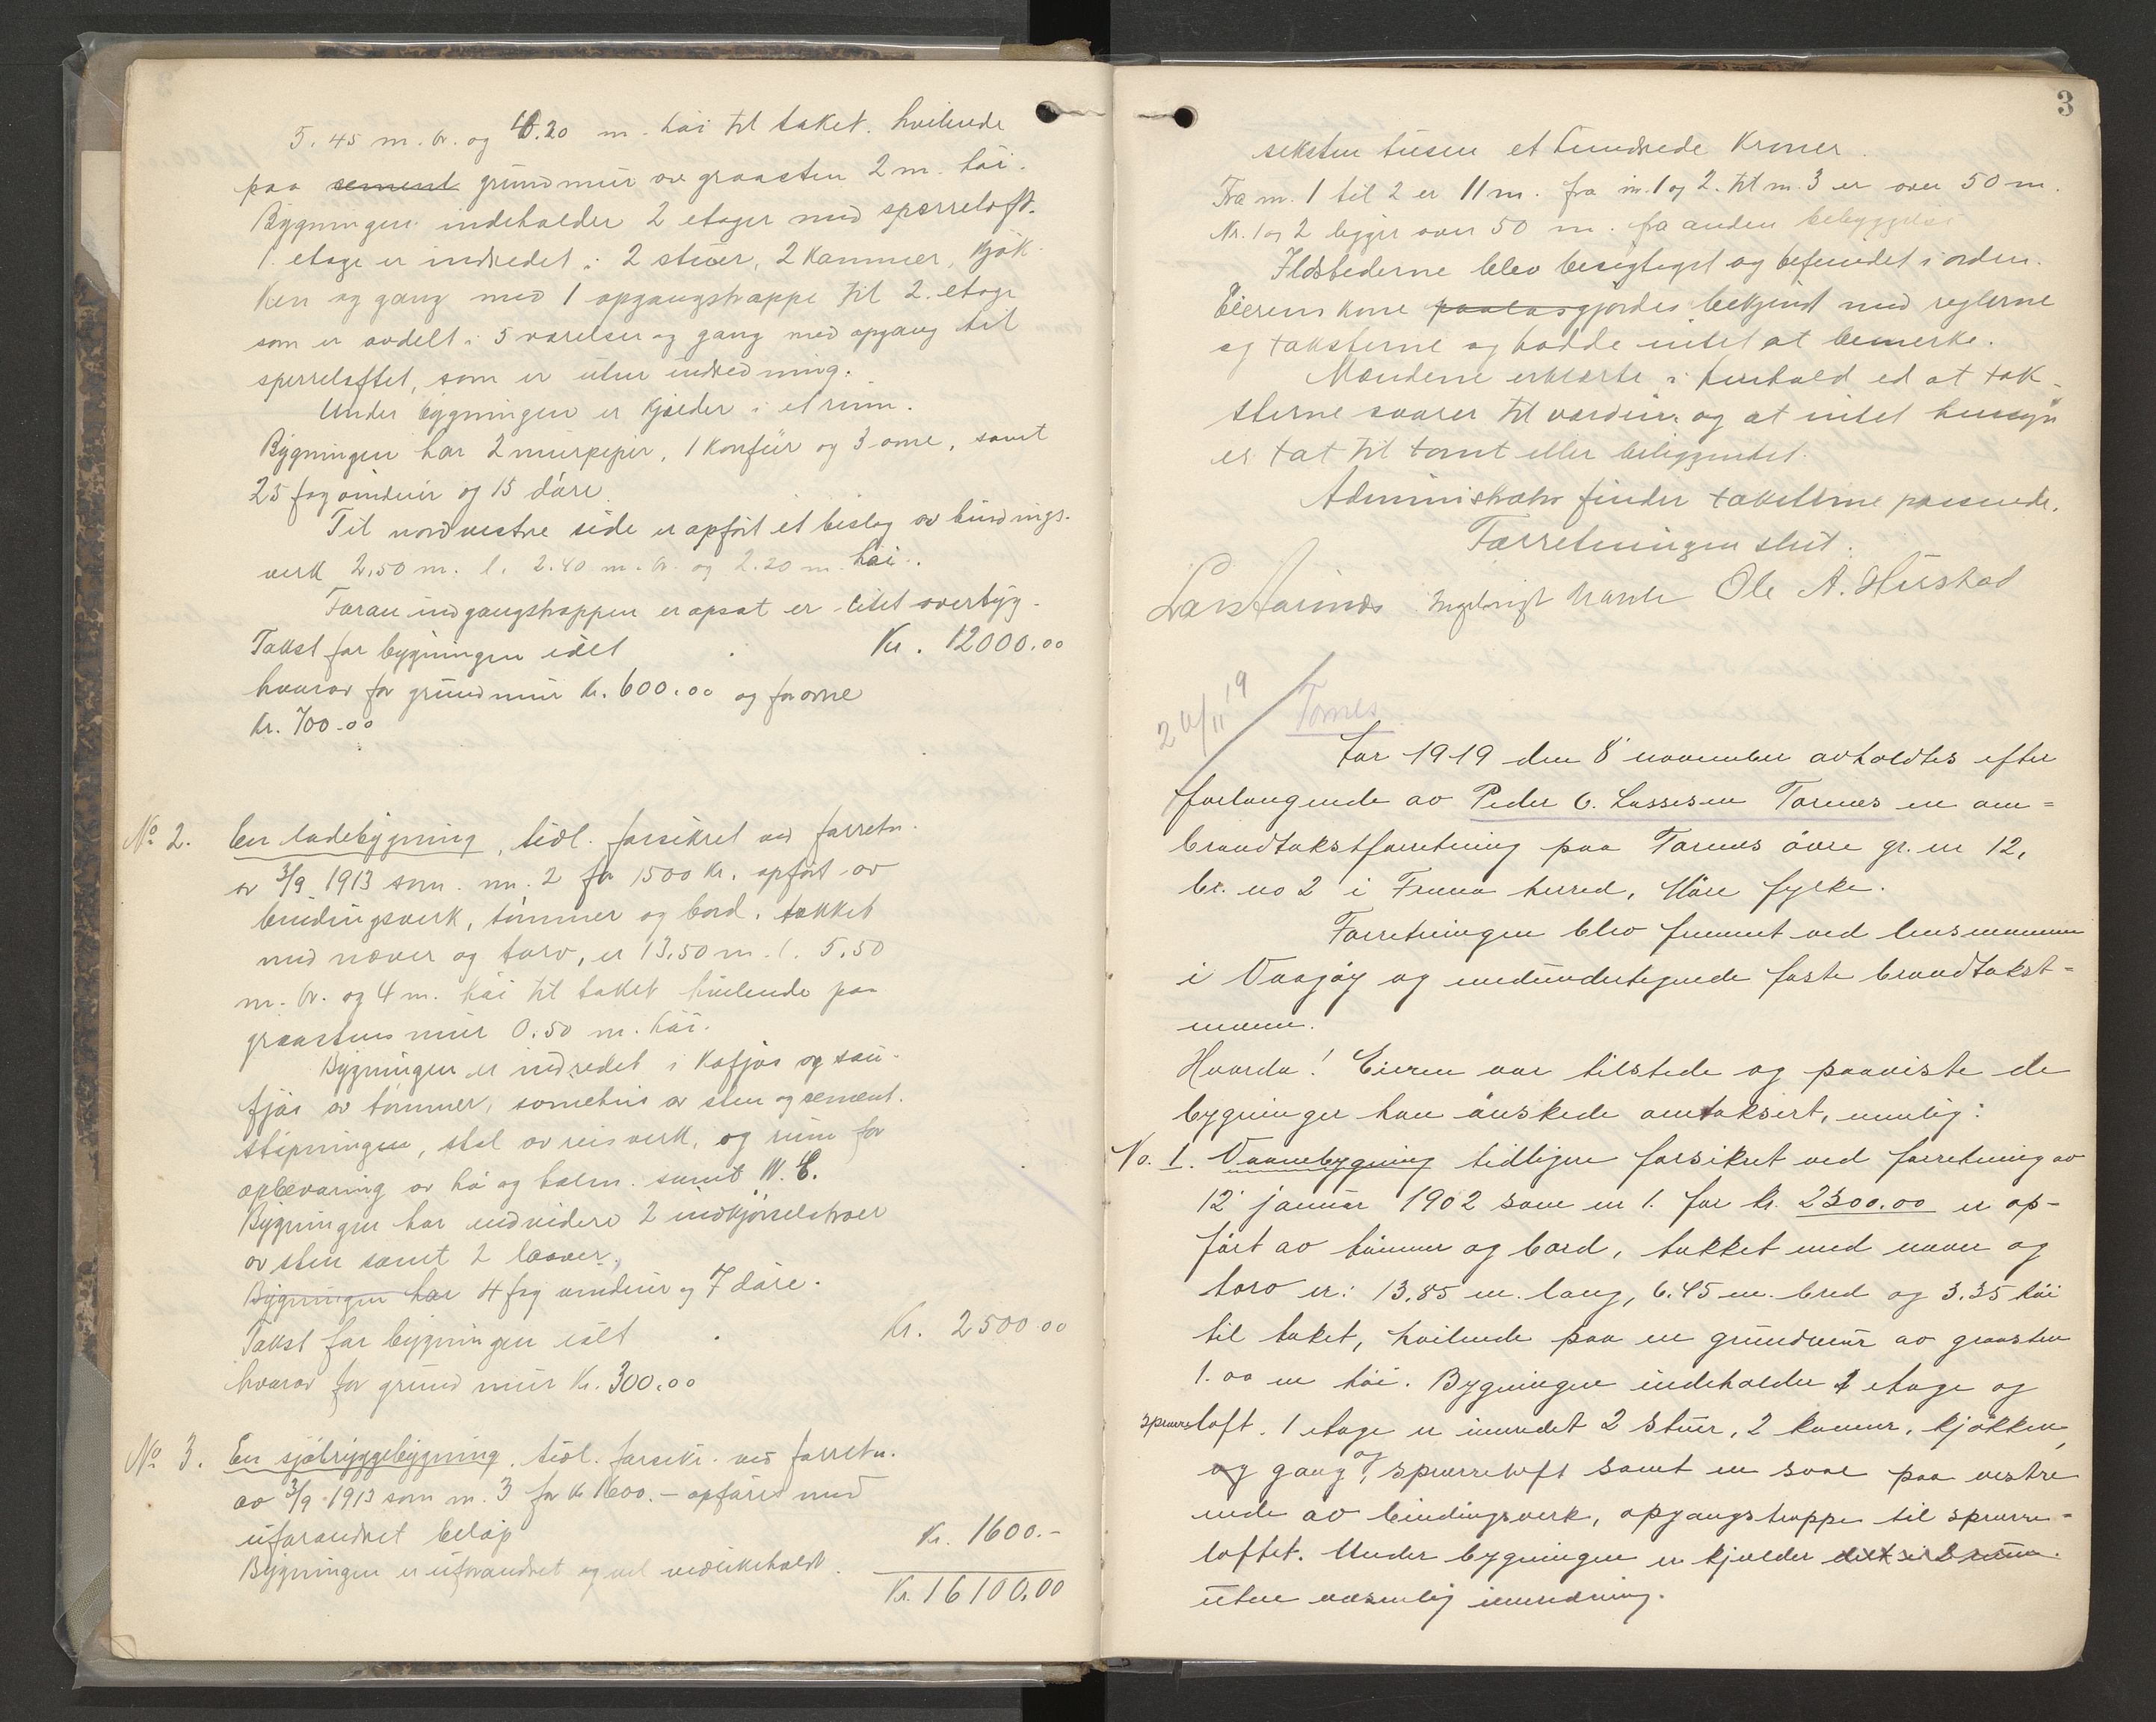 5.45 m. br. og 4.20 m. høi til taket. hvilende
paa sement grundmur av graasten 2 m. høi.
Bygningen indeholder 2 etager med sperreloft.
1. etage er indredet i 2 stuer, 2 kammer, kjøk
ken og gang med 1 opgangstrappe til 2. etage
som er avdelt i 5 værelser og gang med opgang til
sperreloftet, som er uten indredning.
Under bygningen er kjelder i et rum.
Bygningen har 2 murpiper, 1 konfür og 3 ovne, samt
25 fag vinduer og 15 døre.
Til nordvestre side er opført et bislag av bindings-
verk 2.50 m. l. 2.40 m. br. og 2.20 m. høi.
Foran indgangstrappen er opsat er litet overbyg.
Takst for bygningen ialt Kr. 12000.00
hvorav for grundmur Kr. 600.00 og for ovne
Kr. 700.00
No 2. En ladebygning, tidl. forsikret ved forretn.
av 3/9 1913 som nr. 2 for 1500 Kr. opført av
bindingsverk, tømmer og bord. tækket
med næver og torv, er 13.50 m. l. 5.50
m. br. og 4 m. høi til taket hvilende paa
graastens mur 0.50 m. høi.
Bygningen er indredet i kofjøs og sau-
fjøs av tømmer, somehus av sten og sement.
støpningen, stal av reisverk, og rum for
opbevaring av hø og halm. samt W.C.
Bygningen har endvidere 2 indkjørselsbroer
av sten samt 2 laaver,
Bygningen har 4 fag vinduer og 7 døre.
Takst for bygningen ialt Kr. 2500.00
hvorav for grundmur Kr. 300.00
No 3. En sjøbryggebygning, tidl. forsikr. ved forretn.
av 3/9 1913 som nr. 3 for Kr 1600.- opføres med
uforandret beløp Kr. 1600.-
Bygningen er uforandret og vel vedlikeholdt.
Kr. 16100.00
3
seksten tusen et hundrede Kroner.
Fra nr. 1 til 2 er 11 m. fra nr. 1 og 2. til nr. 3 er over 50 m.
Nr. 1 og 2 ligger over 50 m. fra anden bebyggelse
Ildstederne blev besigtiget og befundet i orden.
Eierens kone gjordes bekjendt med reglerne
og taksterne og hadde intet at bemerke.
Mændene erklærte i henhold ed at tak-
sterne svarer til værdien og at intet hensyn
er tat til tomt eller beliggendet.
Administrator finder taksterne passende.
Forretningen slut.
Lars Ingebrigt Ole A. Hustad
24/11 19
Tornes
Aar 1919 den 8 november avholdtes efter
forlangende av Peder C. Lassesen Tornes en om=
brandtakstforretning paa Tornes øvre gr. nr 12,
br. no 2 i Fræna herred, Møre fylke.
Forretningen blev fremmet ved lensmannen
i Vaagøy og medundertegnede faste brandtakst=
menn.
Hvorda! Eieren var tilstede og paaviste de
bygninger han ønskede omtaksert, nemlig:
No. 1. Vaanebygning tidligere forsikret ved forretning av
12 januar 1902 som nr 1. for kr. 2300.00 er op-
ført av tømmer og bord, tækket med næver og
torv er: 13.85 m. lang, 6.45 m. bred og 3.35 høi
til taket, hvilende paa en grundmur av graasten
1.00 m høi. Bygningen indeholder 1 etage og
sperreloft. 1 etage er innredet 2 stuer, 2 kammer, kjøkken,
og gang og sperreloft samt en sval paa vestre
ende av bindingsverk, opgangstrappe til sperre=
loftet. Under bygningen er kjelder delt i 2 rum.
uten væsenlig innredning.